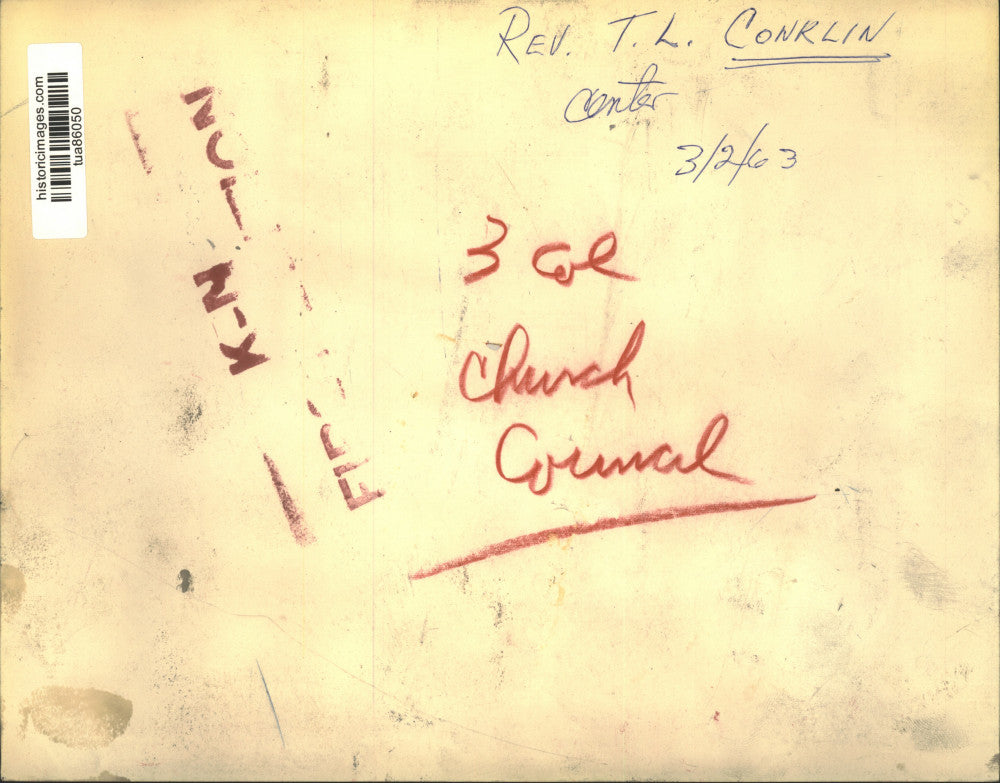 REV. T. L. CONKLIN
center
3/2/63
3 col
Church
Council
historicimages.com
tua86050